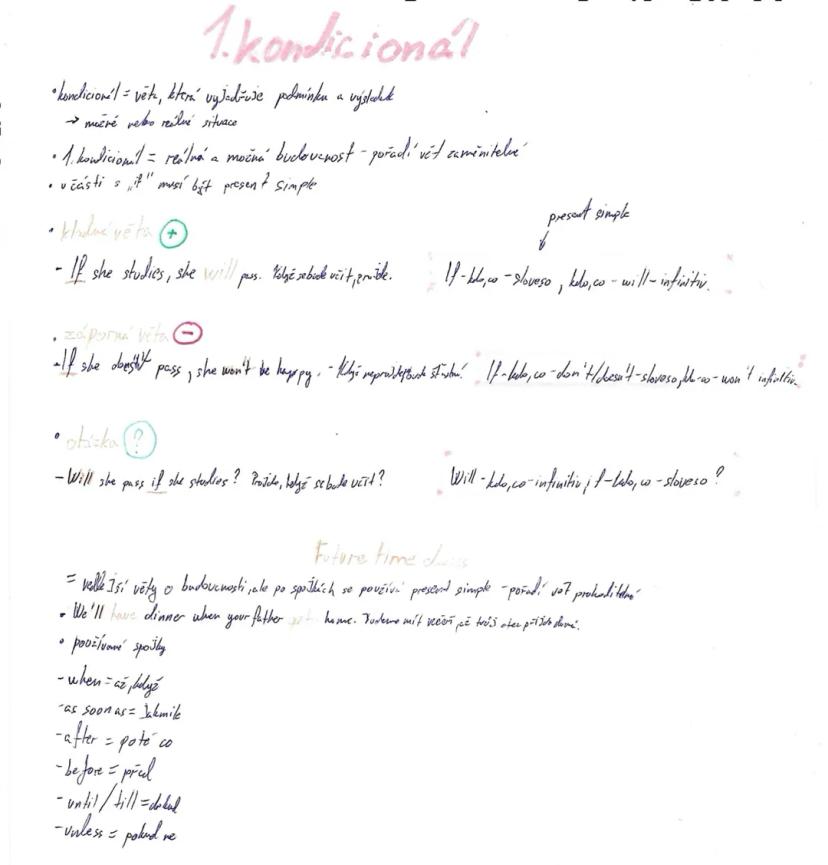 1. kondicionál
• kondicionál = věta, která vyjadřuje podmínku a výsledek
→ možné nebo reálné situace
• 1. kondicionál = reálná a možná budoucnost - pořadí vět zaměnitelné
• v části s „if" musí být present simple
• kladná věta +
present simple
- If she studies, she will pass. Když se bude učit, projde.
If - kdo, co - sloveso, kdo, co - will - infinitiv.
• záporná věta -
- If she doesn't pass, she won't be happy. - Když neprojde, nebude šťastná.
If - kdo, co - don't/doesn't - sloveso, kdo - co - won't infinitiv.
• otázka ?
- Will she pass if she studies? Projde, když se bude učit?
Will - kdo, co - infinitiv, if - kdo, co - sloveso?
Future time
= vedlejší věty o budoucnosti, ale po spojkách se používá present simple - pořadí vět prohoditelné
• We'll have dinner when your father gets home. Budeme mít večeři, až tvůj otec přijde domů.
• používané spojky
- when = až, když
- as soon as = Jakmile
- after = poté co
- before = před
- until / till = dokud
- unless = pokud ne